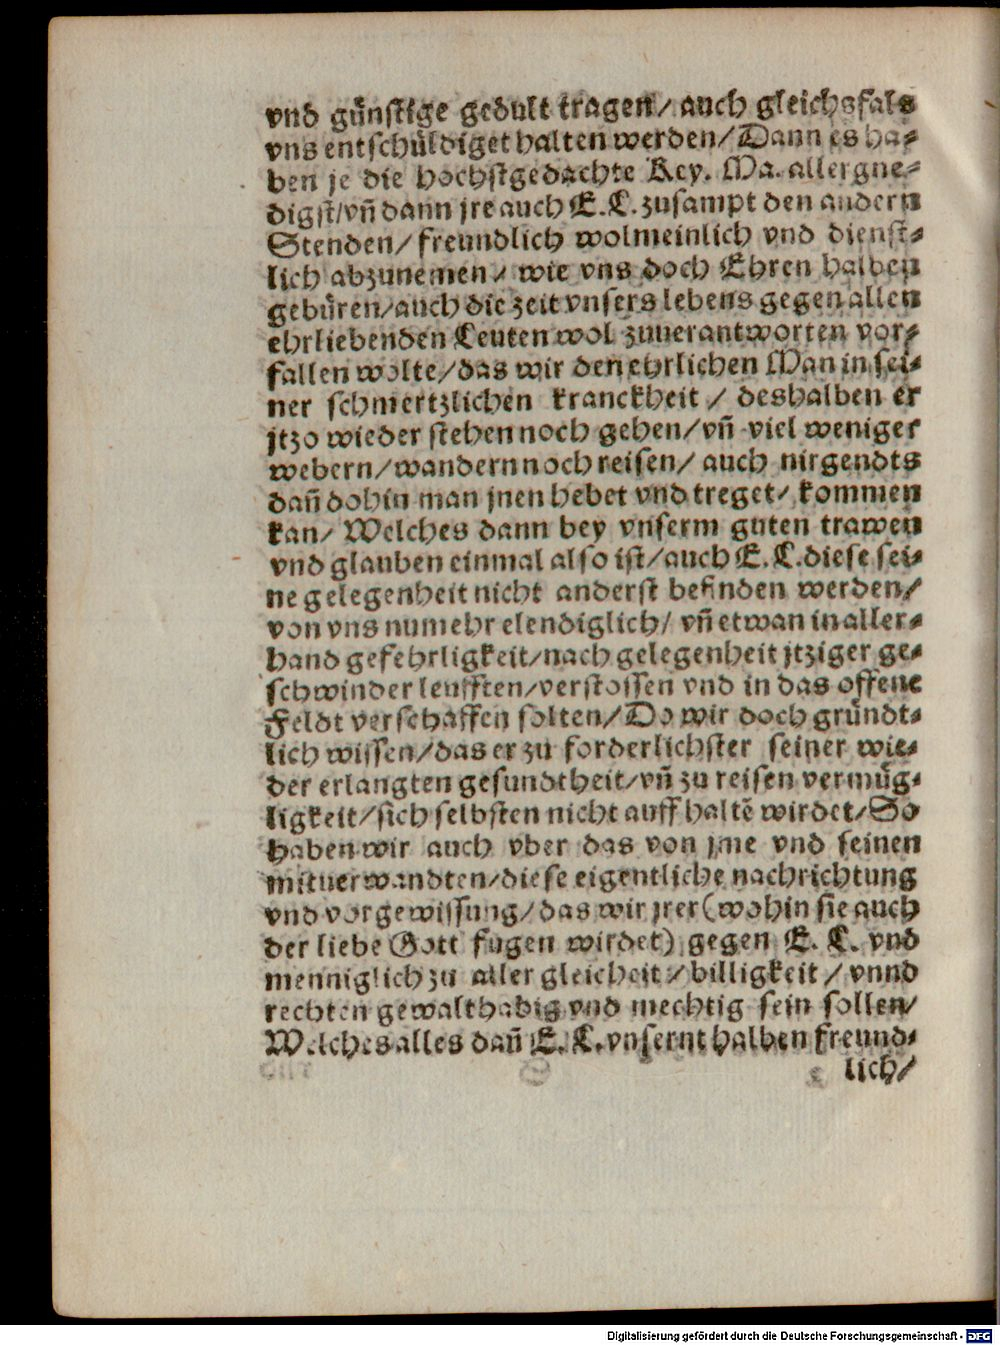 vnd gůnstige gedult tragen/ auch gleichsfals
vns entschůldiget halten werden/ Dann es ha-
ben je die hochstgedachte Key. Ma. allergne-
digst/vñ dann jre auch E.L. zusampt den andern
Stenden/ freundlich wolmeinlich vnd dienst-
lich abzunemen/ wie vns doch Ehren halben
gebůren/auch die zeit vnsers lebens gegen allen
ehrliebenden Leuten wol zuuerantworten vor-
fallen wolte/das wir den ehrlichen Man in sei-
ner schmertzlichen kranckheit / deshalben er
jtzo wieder stehen noch gehen/vñ viel weniger
webern/wandern noch reisen/ auch nirgendts
dañ dohin man jnen hebet vnd treget/ kommen
kan/ Welches dann bey vnserm guten trawen
vnd glauben einmal also ist/auch E.L.diese sei-
ne gelegenheit nicht anderst befinden werden/
von vns numehr elendiglich/ vñ etwan in aller-
hand gefehrligkeit/nach gelegenheit jtziger ge-
schwinder leufften/verstossen vnd in das offene
Feldt verschaffen solten/Do wir doch gründt-
lich wissen/das er zu forderlichster seiner wie-
der erlangten gesundtheit/vñ zu reisen vermůg-
ligkeit/sich selbsten nicht auff haltẽ wirdet/So
haben wir auch vber das von jme vnd seinen
mituerwandten/diese eigentliche nachrichtung
vnd vorgewissung/das wir jrer(wohin sie auch
der liebe Gott fugen wirdet) gegen E. L. vnd
menniglich zu aller gleicheit/billigkeit/vnnd
rechten gewalthabig vnd mechtig sein sollen/
Welches alles dañ E. L.vnsernt halben freund-
lich/
Digitalisierung gefördert durch die Deutsche Forschungsgemeinschaft - DFG